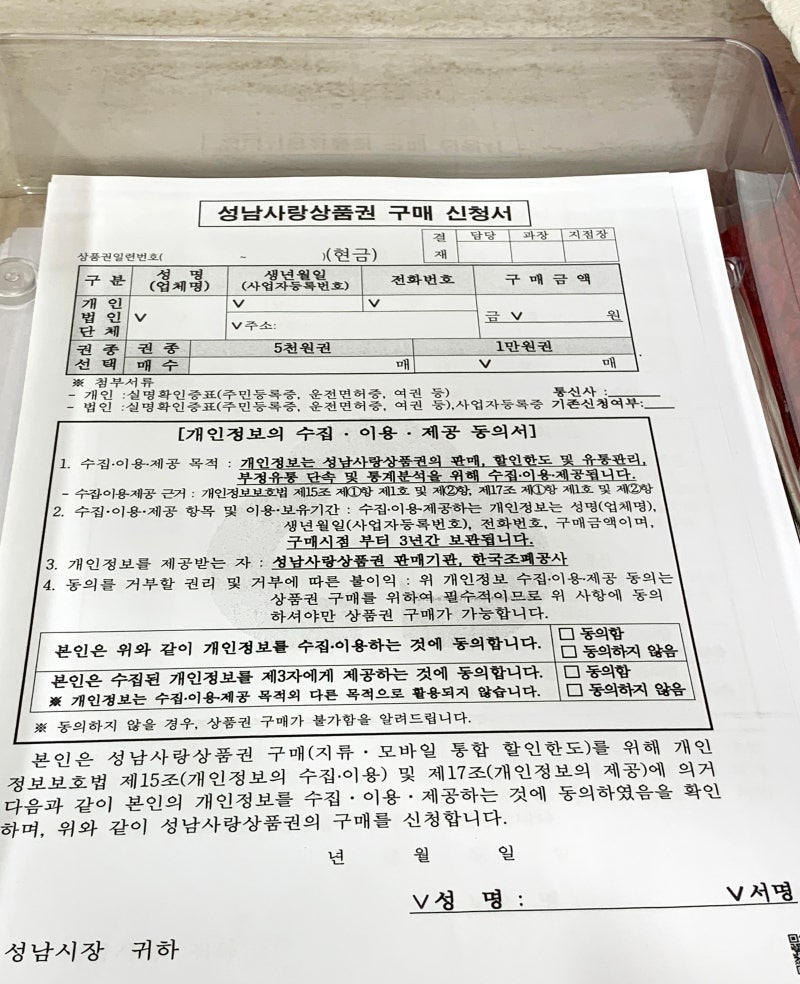 성남사랑상품권 구매 신청서
결재 담당 과장 지점장
상품권일련번호( ~ )(현금)
구 분 성 명 (업체명) 생년월일 (사업자등록번호) 전화번호 구 매 금 액
개 인 법 인 단 체 V V V 금 V 원
V 주소:
권 종 선 택 권 종 5천원권 1만원권
매 수 매 V 매
※ 첨부서류
- 개인 :실명확인증표(주민등록증, 운전면허증, 여권 등) 통신사 :
- 법인 :실명확인증표(주민등록증, 운전면허증, 여권 등),사업자등록증 기존신청여부:
[개인정보의 수집 · 이용 · 제공 동의서]
1. 수집·이용·제공 목적 : 개인정보는 성남사랑상품권의 판매, 할인한도 및 유통관리,
부정유통 단속 및 통계분석을 위해 수집·이용·제공됩니다.
- 수집·이용·제공 근거 : 개인정보보호법 제15조 제①항 제1호 및 제②항, 제17조 제①항 제1호 및 제②항
2. 수집·이용·제공 항목 및 이용·보유기간 : 수집·이용·제공하는 개인정보는 성명(업체명),
생년월일(사업자등록번호), 전화번호, 구매금액이며,
구매시점 부터 3년간 보관됩니다.
3. 개인정보를 제공받는 자 : 성남사랑상품권 판매기관, 한국조폐공사
4. 동의를 거부할 권리 및 거부에 따른 불이익 : 위 개인정보 수집·이용·제공 동의는
상품권 구매를 위하여 필수적이므로 위 사항에 동의
하셔야만 상품권 구매가 가능합니다.
본인은 위와 같이 개인정보를 수집·이용하는 것에 동의합니다. □ 동의함
□ 동의하지 않음
본인은 수집된 개인정보를 제3자에게 제공하는 것에 동의합니다. □ 동의함
※ 개인정보는 수집·이용·제공 목적외 다른 목적으로 활용되지 않습니다. □ 동의하지 않음
※ 동의하지 않을 경우, 상품권 구매가 불가함을 알려드립니다.
본인은 성남사랑상품권 구매(지류 · 모바일 통합 할인한도)를 위해 개인
정보보호법 제15조(개인정보의 수집·이용) 및 제17조(개인정보의 제공)에 의거
다음과 같이 본인의 개인정보를 수집 · 이용 · 제공하는 것에 동의하였음을 확인
하며, 위와 같이 성남사랑상품권의 구매를 신청합니다.
년 월 일
V 성 명 : V 서명
성남시장 귀하